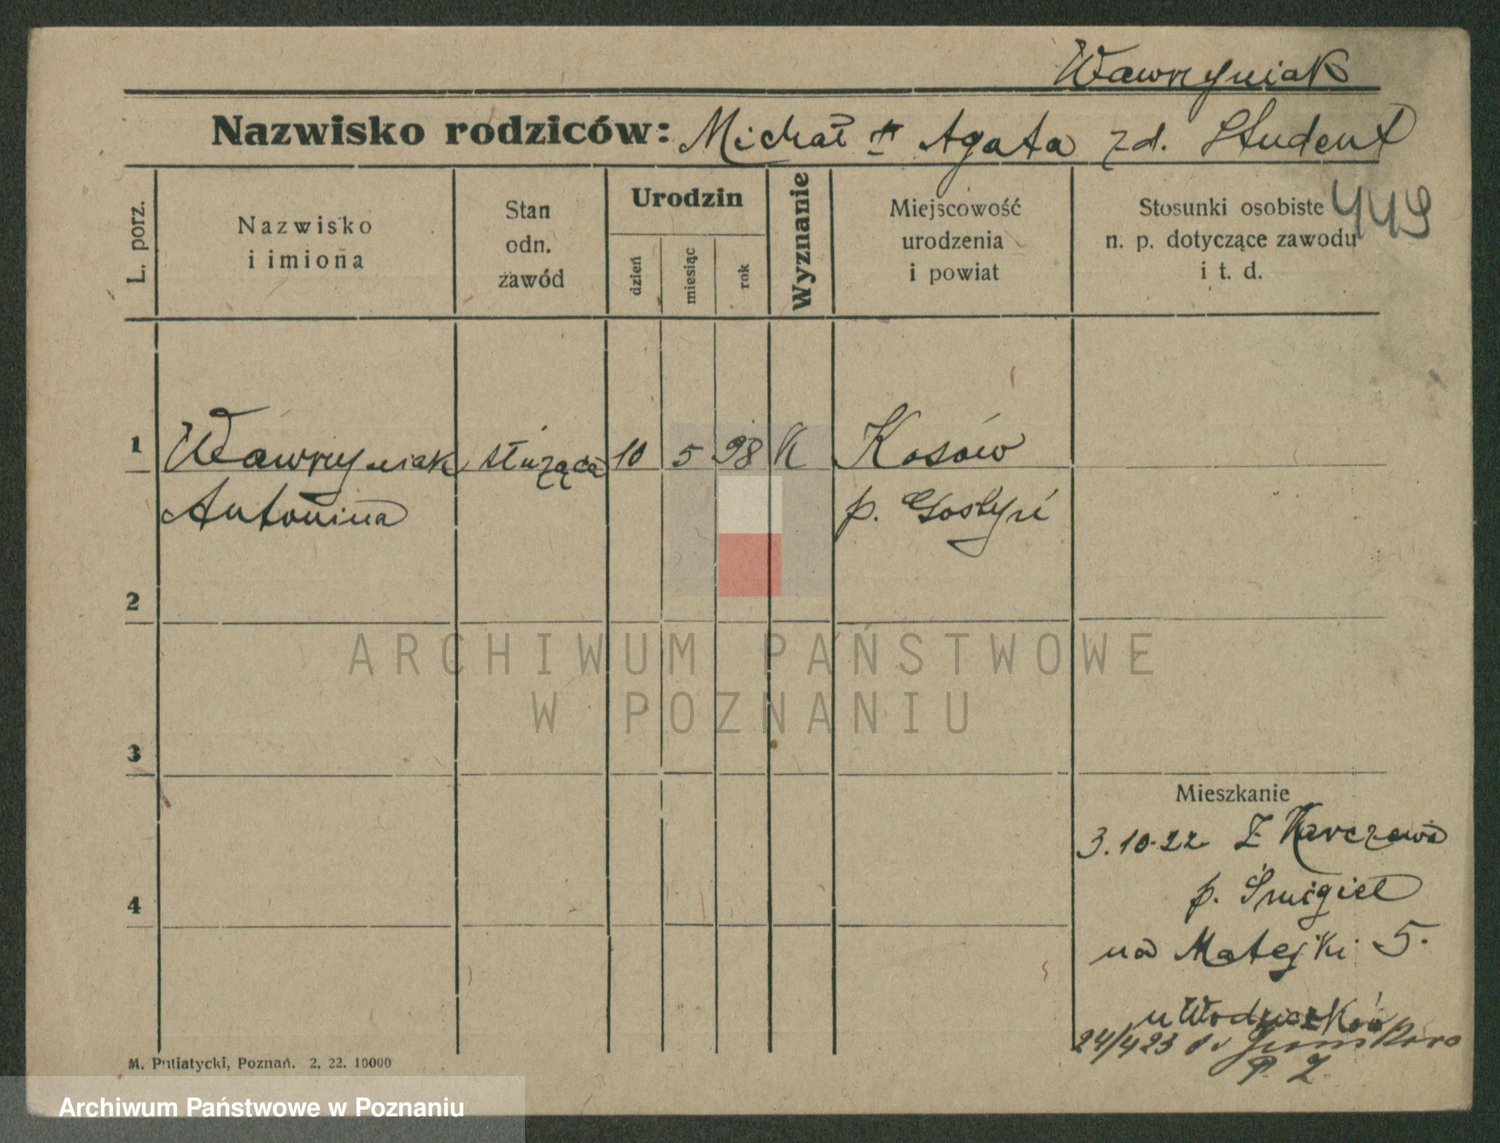 Wawrzyniak
Nazwisko rodziców: Michał Agata zd. Student
L. porz.
Nazwisko
i imiona
Stan
odn.
zawód
Urodzin
dzień
miesiąc
rok
Wyznanie
Miejscowość
urodzenia
i powiat
Stosunki osobiste
n. p. dotyczące zawodu
i t. d.
449
1 Wawrzyniak służąca 10 5 98 K Kosowo
Antonina p. Gostyń
2
3
4
ARCHIWUM PAŃSTWOWE
W POZNANIU
Mieszkanie
3.10.22 Z Karczewa
p. Śmigiel
na Matejki 5.
u
24/4 23 do
M. Putiatycki, Poznań. 2. 22. 10000
Archiwum Państwowe w Poznaniu